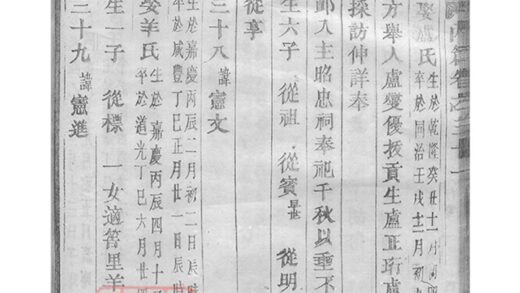 娶盧氏
生於乾隆癸丑十一月
卒於同治壬戌十二月初
方舉人盧燮優拔貢生盧正珩盧
採訪仲詳奉
入主昭忠祠奉祀千秋以垂不
生六子 從祖 從賓 從明
從享
三十八 諱憲文
生於嘉慶丙辰二月初二日辰時
卒於咸豐丁巳正月廿一日辰時
娶羊氏
生於嘉慶丙辰四月十
卒於道光丁巳六月廿
生一子 從標 一女適管里羊
三十九 諱憲進